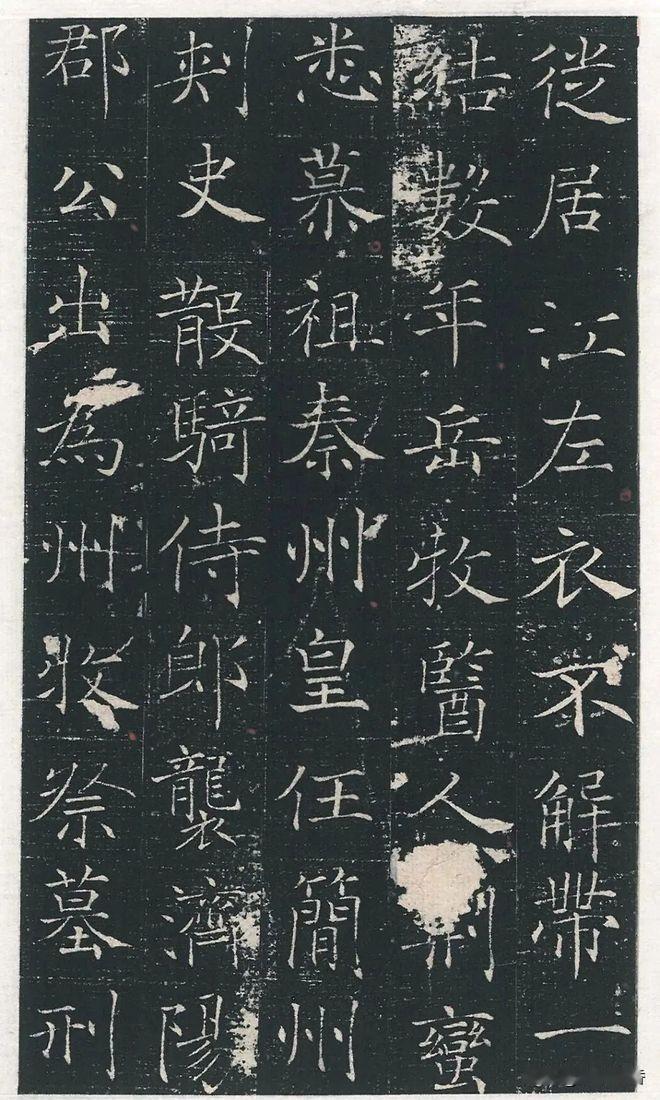 徙居江左衣不解帶一
結數年岳牧醫人荆蠻
悉慕祖秦州皇任簡州
刾史散騎侍郎襲濟陽
郡公出為州牧祭墓刑